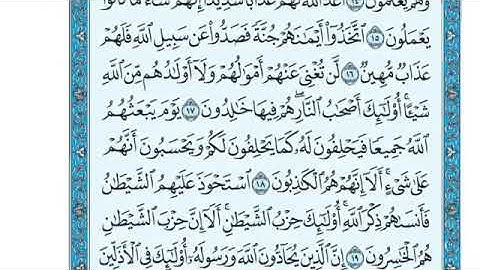 وَهُمْ يَعْلَمُونَ ﴿١٤﴾ أَعَدَّ ٱللَّهُ لَهُمْ عَذَابًا شَدِيدًا إِنَّهُمْ سَآءَ مَا كَانُوا۟
يَعْمَلُونَ ﴿١٥﴾ ٱتَّخَذُوٓا۟ أَيْمَٰنَهُمْ جُنَّةً فَصَدُّوا۟ عَن سَبِيلِ ٱللَّهِ فَلَهُمْ
عَذَابٌ مُّهِينٌ ﴿١٦﴾ لَّن تُغْنِىَ عَنْهُمْ أَمْوَٰلُهُمْ وَلَآ أَوْلَٰدُهُم مِّنَ ٱللَّهِ
شَيْـًٔا أُو۟لَٰٓئِكَ أَصْحَٰبُ ٱلنَّارِ هُمْ فِيهَا خَٰلِدُونَ ﴿١٧﴾ يَوْمَ يَبْعَثُهُمُ
ٱللَّهُ جَمِيعًا فَيَحْلِفُونَ لَهُۥ كَمَا يَحْلِفُونَ لَكُمْ وَيَحْسَبُونَ أَنَّهُمْ
عَلَىٰ شَىْءٍ أَلَآ إِنَّهُمْ هُمُ ٱلْكَٰذِبُونَ ﴿١٨﴾ ٱسْتَحْوَذَ عَلَيْهِمُ ٱلشَّيْطَٰنُ
فَأَنسَىٰهُمْ ذِكْرَ ٱللَّهِ أُو۟لَٰٓئِكَ حِزْبُ ٱلشَّيْطَٰنِ أَلَآ إِنَّ حِزْبَ ٱلشَّيْطَٰنِ
هُمُ ٱلْخَٰسِرُونَ ﴿١٩﴾ إِنَّ ٱلَّذِينَ يُحَآدُّونَ ٱللَّهَ وَرَسُولَهُۥٓ أُو۟لَٰٓئِكَ فِى ٱلْأَذَلِّينَ